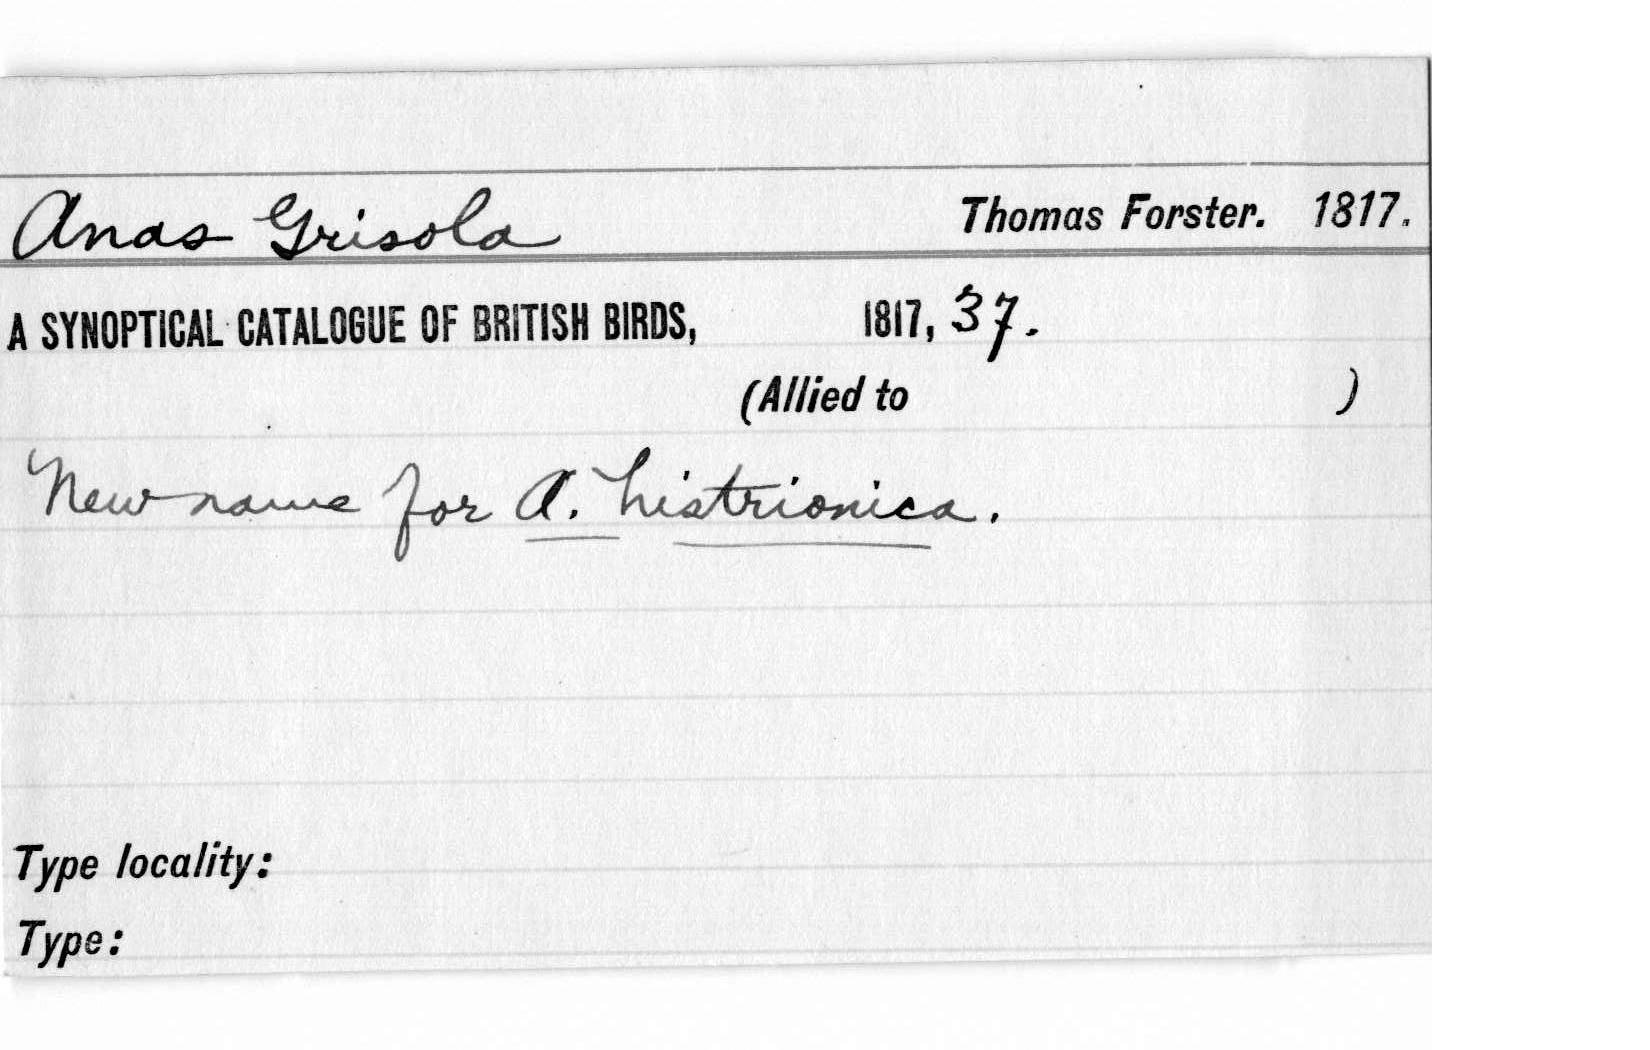 Anas Grisola Thomas Forster. 1817.
A SYNOPTICAL CATALOGUE OF BRITISH BIRDS, 1817, 37.
(Allied to )
New name for A. histrionica.
Type locality:
Type: